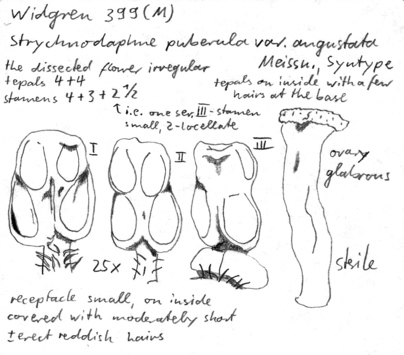 Widgren 399 (M)
Strychnodaphne puberula var. angustata
Meissn., Syntype
the dissected flower irregular
tepals 4+4
stamens 4+3+2 1/2
tepals on inside with a few
hairs at the base
↑ i.e. one ser. III-stamen
small, 2-locellate
I
II
III
ovary
glabrous
25x
sterile
receptacle small, on inside
covered with moderately short
±erect reddish hairs